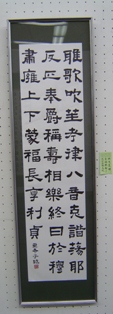 雅歌吹笙考律八音克諧蕩邪
反正奉爵稱壽相樂終日於穆
肅雍上下蒙福長享利貞